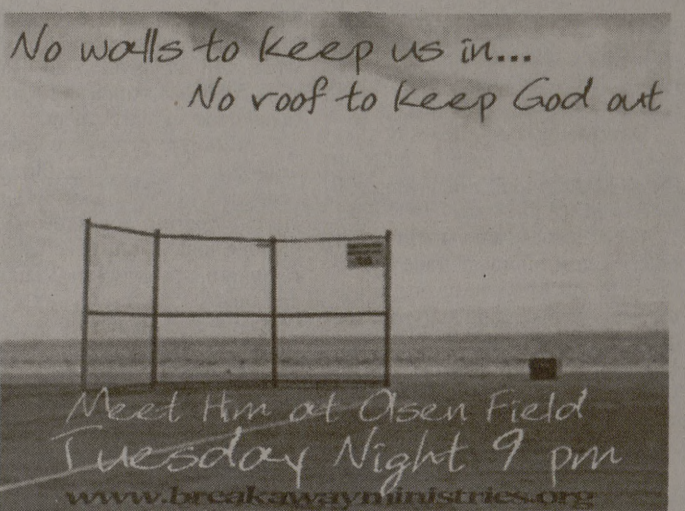 No walls to keep us in...
No roof to keep God out
Meet Him at Olsen Field
Tuesday Night 9 pm
www.breakawayministries.org